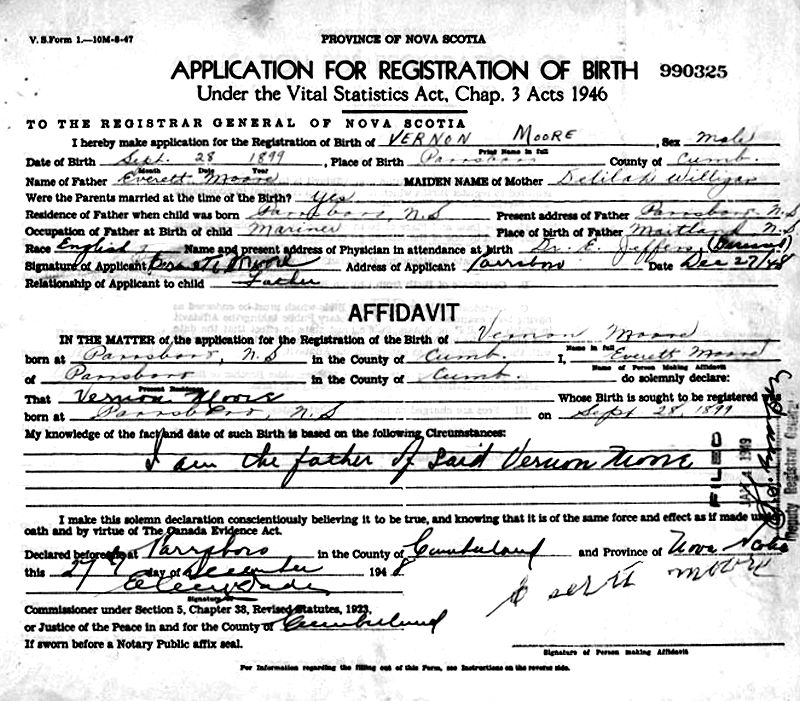 V. S. Form 1.—10M-8-47
PROVINCE OF NOVA SCOTIA
APPLICATION FOR REGISTRATION OF BIRTH 990325
Under the Vital Statistics Act, Chap. 3 Acts 1946
TO THE REGISTRAR GENERAL OF NOVA SCOTIA
I hereby make application for the Registration of Birth of VERNON MOORE, Sex Male
Print Name in full
Date of Birth Sept. 28 1899, Place of Birth Parrsboro County of Cumb.
Month Date Year
Name of Father Everett Moore MAIDEN NAME of Mother Delilah Willigar
Were the Parents married at the time of the Birth? Yes
Residence of Father when child was born Parrsboro, N.S Present address of Father Parrsboro N.S
Occupation of Father at Birth of child Mariner Place of birth of Father Maitland N.S.
Race English Name and present address of Physician in attendance at birth Dr. E. Jeffers (Deceased)
Signature of Applicant Everett Moore Address of Applicant Parrsboro Date Dec 27/48
Relationship of Applicant to child Father
AFFIDAVIT
IN THE MATTER of the application for the Registration of Birth of Vernon Moore
Name in full
born at Parrsboro, N.S in the County of Cumb. I, Everett Moore
Name of Person Making Affidavit
of Parrsboro in the County of Cumb. do solemnly declare:
Present Residence
That Vernon Moore Whose Birth is sought to be registered was
born at Parrsboro, N.S on Sept 28, 1899
My knowledge of the fact and date of such Birth is based on the following Circumstances:
I am the father of said Vernon Moore
FILED
JAN 4 1949
Deputy Registrar General
I make this solemn declaration conscientiously believing it to be true, and knowing that it is of the same force and effect as if made under
oath and by virtue of The Canada Evidence Act.
Declared before me at Parrsboro in the County of Cumberland and Province of Nova Scotia
this 27th day of December 1948
Everett Moore
Signature
Commissioner under Section 5, Chapter 38, Revised Statutes, 1923,
or Justice of the Peace in and for the County of Cumberland
If sworn before a Notary Public affix seal.
Signature of Person making Affidavit
For Information regarding the filling out of this Form, see Instructions on the reverse side.